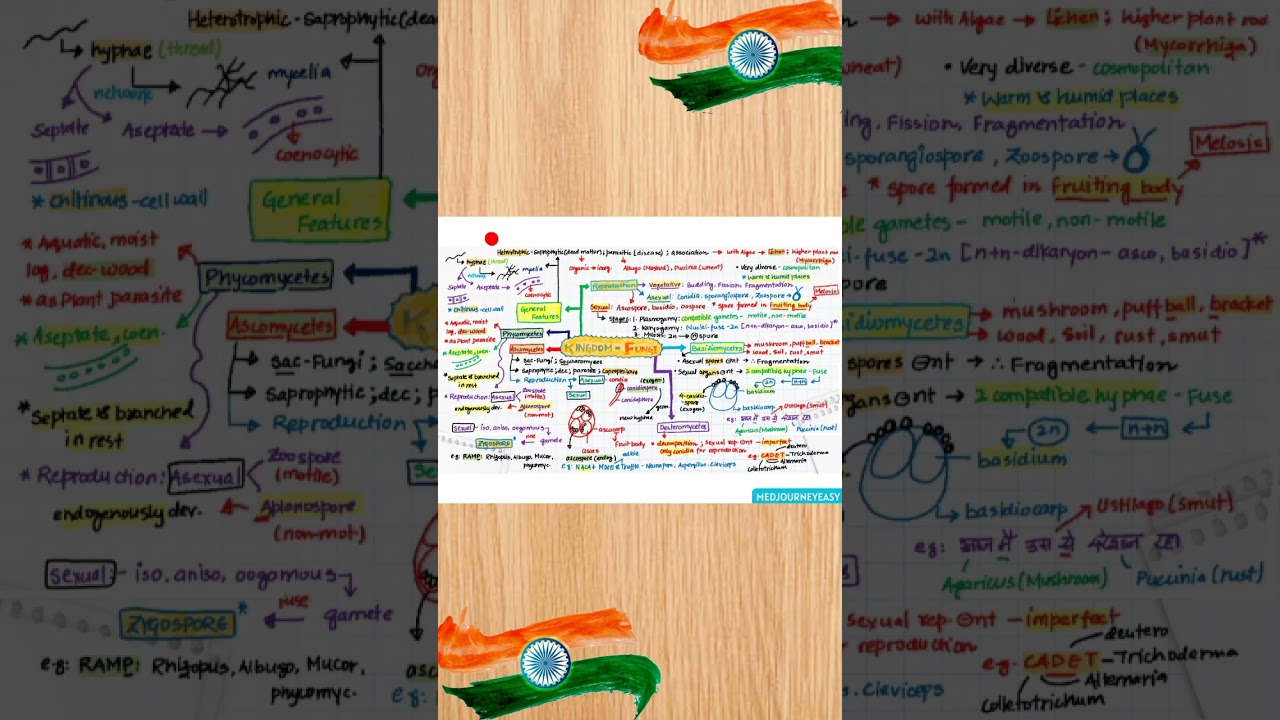 Heterotrophic - Saprophytic (dead matter); parasitic (disease); association → with Algae → Lichen; higher plant root
(Mycorrhiza)
hyphae (thread)
network
mycelia
Septate Aseptate →
coenocytic
* chitinous - cell wall
General
Features
organic → inorg.
Albugo (Mustard), Puccinia (wheat)
• Very diverse - cosmopolitan
* Warm & humid places
Reproduction → Vegetative: Budding, Fission, Fragmentation
Asexual: Conidia, sporangiospore, Zoospore →
Meiosis
Sexual: Ascospore, basidio, oospore * spore formed in fruiting body
→ Stages: 1. Plasmogamy: compatible gametes - motile, non-motile
2. Karyogamy: Nuclei-fuse-2n [n+n-dikaryon- asco, basidio]*
3. Meiosis: 2n → n spore
KINGDOM = FUNGI
Phycomycetes
* Aquatic, moist
log, dec-wood
* as Plant parasite
* Aseptate, coen.
* Septate & branched
in rest
* Reproduction: Asexual
Zoospore
(motile)
endogenously dev.
Aplanospore
(non-mot)
Sexual - iso, aniso, oogamous
fuse
gamete
ZYGOSPORE *
e.g: RAMP: Rhizopus, Albugo, Mucor,
phycomyc.
Ascomycetes
→ Sac-Fungi; Saccharomyces
→ Saprophytic; dec; parasite; Coprophilous
→ Reproduction → Asexual - conidia (exogen)
Sexual
conidiospore
conidiophore
germ
new hyphae
ascocarp
Fruit body
ascus
ascospore (endog)
edible
e.g: NACA + Morels & Truffle - Neurospora, Aspergillus, Claviceps
Basidiomycetes
→ mushroom, puff ball, bracket
→ wood, Soil, rust, smut
• Asexual spores ⊖nt → ∴ Fragmentation
• Sexual organs ⊖nt → 2 compatible hyphae - Fuse
2n ← n+n
basidium
4-basidio-
spore
(exogen)
basidiocarp
Ustilago (Smut)
Agaricus (Mushroom)
Puccinia (rust)
Deuteromycetes
* decomposition; sexual rep ⊖nt - imperfect
only conidia for reproduction
deutero
e.g. CADET - Trichoderma
Alternaria
Colletotrichum
MEDJOURNEYEASY